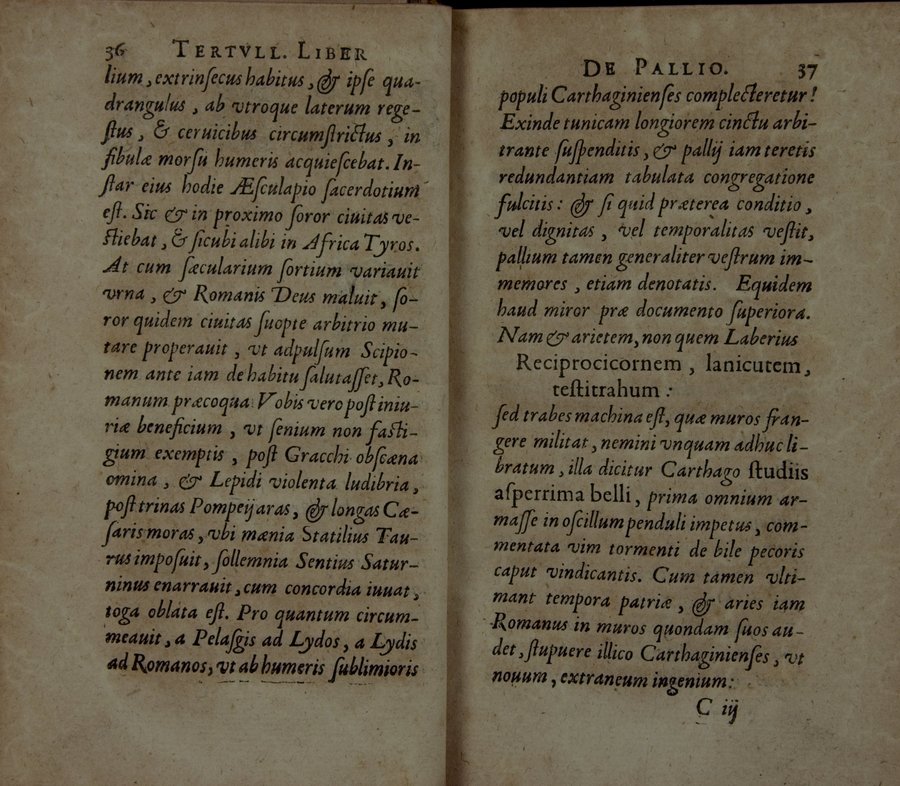 36 TERTVLL. LIBER
lium, extrinſecus habitus, & ipſe qua-
drangulus, ab vtroque laterum rege-
ſtus, & ceruicibus circumſtrictus, in
fibulæ morſu humeris acquieſcebat. In-
ſtar eius hodie Æſculapio ſacerdotium
eſt. Sic & in proximo ſoror ciuitas ve-
ſtiebat, & ſicubi alibi in Africa Tyros.
At cum ſæcularium ſortium variauit
vrna, & Romanis Deus maluit, ſo-
ror quidem ciuitas ſuopte arbitrio mu-
tare properauit, vt adpulſum Scipio-
nem ante iam de habitu ſalutaſſet, Ro-
manum præcoqua. Vobis vero poſt iniu-
riæ beneficium, vt ſenium non faſti-
gium exemptis, poſt Gracchi obſcæna
omina, & Lepidi violenta ludibria,
poſt trinas Pompeij aras, & longas Cæ-
ſaris moras, vbi mænia Statilius Tau-
rus impoſuit, ſollemnia Sentius Satur-
ninus enarrauit, cum concordia iuuat,
toga oblata eſt. Pro quantum circum-
meauit, a Pelaſgis ad Lydos, a Lydis
ad Romanos, vt ab humeris ſublimioris
DE PALLIO. 37
populi Carthaginienſes complecteretur!
Exinde tunicam longiorem cinctu arbi-
trante ſuſpenditis, & pallij iam teretis
redundantiam tabulata congregatione
fulcitis: & ſi quid præterea conditio,
vel dignitas, vel temporalitas veſtit,
pallium tamen generaliter veſtrum im-
memores, etiam denotatis. Equidem
haud miror præ documento ſuperiora.
Nam & arietem, non quem Laberius
Reciprocicornem, lanicutem,
teſtitrahum:
ſed trabes machina eſt, quæ muros fran-
gere militat, nemini vnquam adhuc li-
bratum, illa dicitur Carthago ſtudiis
aſperrima belli, prima omnium ar-
maſſe in oſcillum penduli impetus, com-
mentata vim tormenti de bile pecoris
caput vindicantis. Cum tamen vlti-
mant tempora patriæ, & aries iam
Romanus in muros quondam ſuos au-
det, ſtupuere illico Carthaginienſes, vt
nouum, extraneum ingenium:
C iij